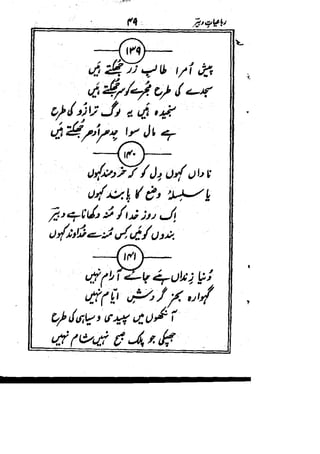 رباعیاتِ دبیر ۴۹
۱۳۹
پیش اُمرا طالب زر جھکتے ہیں
سجدے کی طرح مجرے کو سر جھکتے ہیں
سنجیدہ ہیں یہ لوگ ترازو کی طرح
ہے مال سوا جدھر اُدھر جھکتے ہیں
۱۴۰
ناداں کہوں دل کو کہ خردمند کہوں
یا سلسلۂ وضع کا پابند کہوں
اک روز خدا کو منہ دکھانا ہے دبیر
بندوں کو میں کس منہ سے خداوند کہوں
۱۴۱
دُنیا زنداں ہے جائے آرام نہیں
گہوارہ بجز گردشِ ایام نہیں
آنکھوں میں سپیدی و سیاہی کی طرح
جھپکی جو پلک صبح نہیں شام نہیں